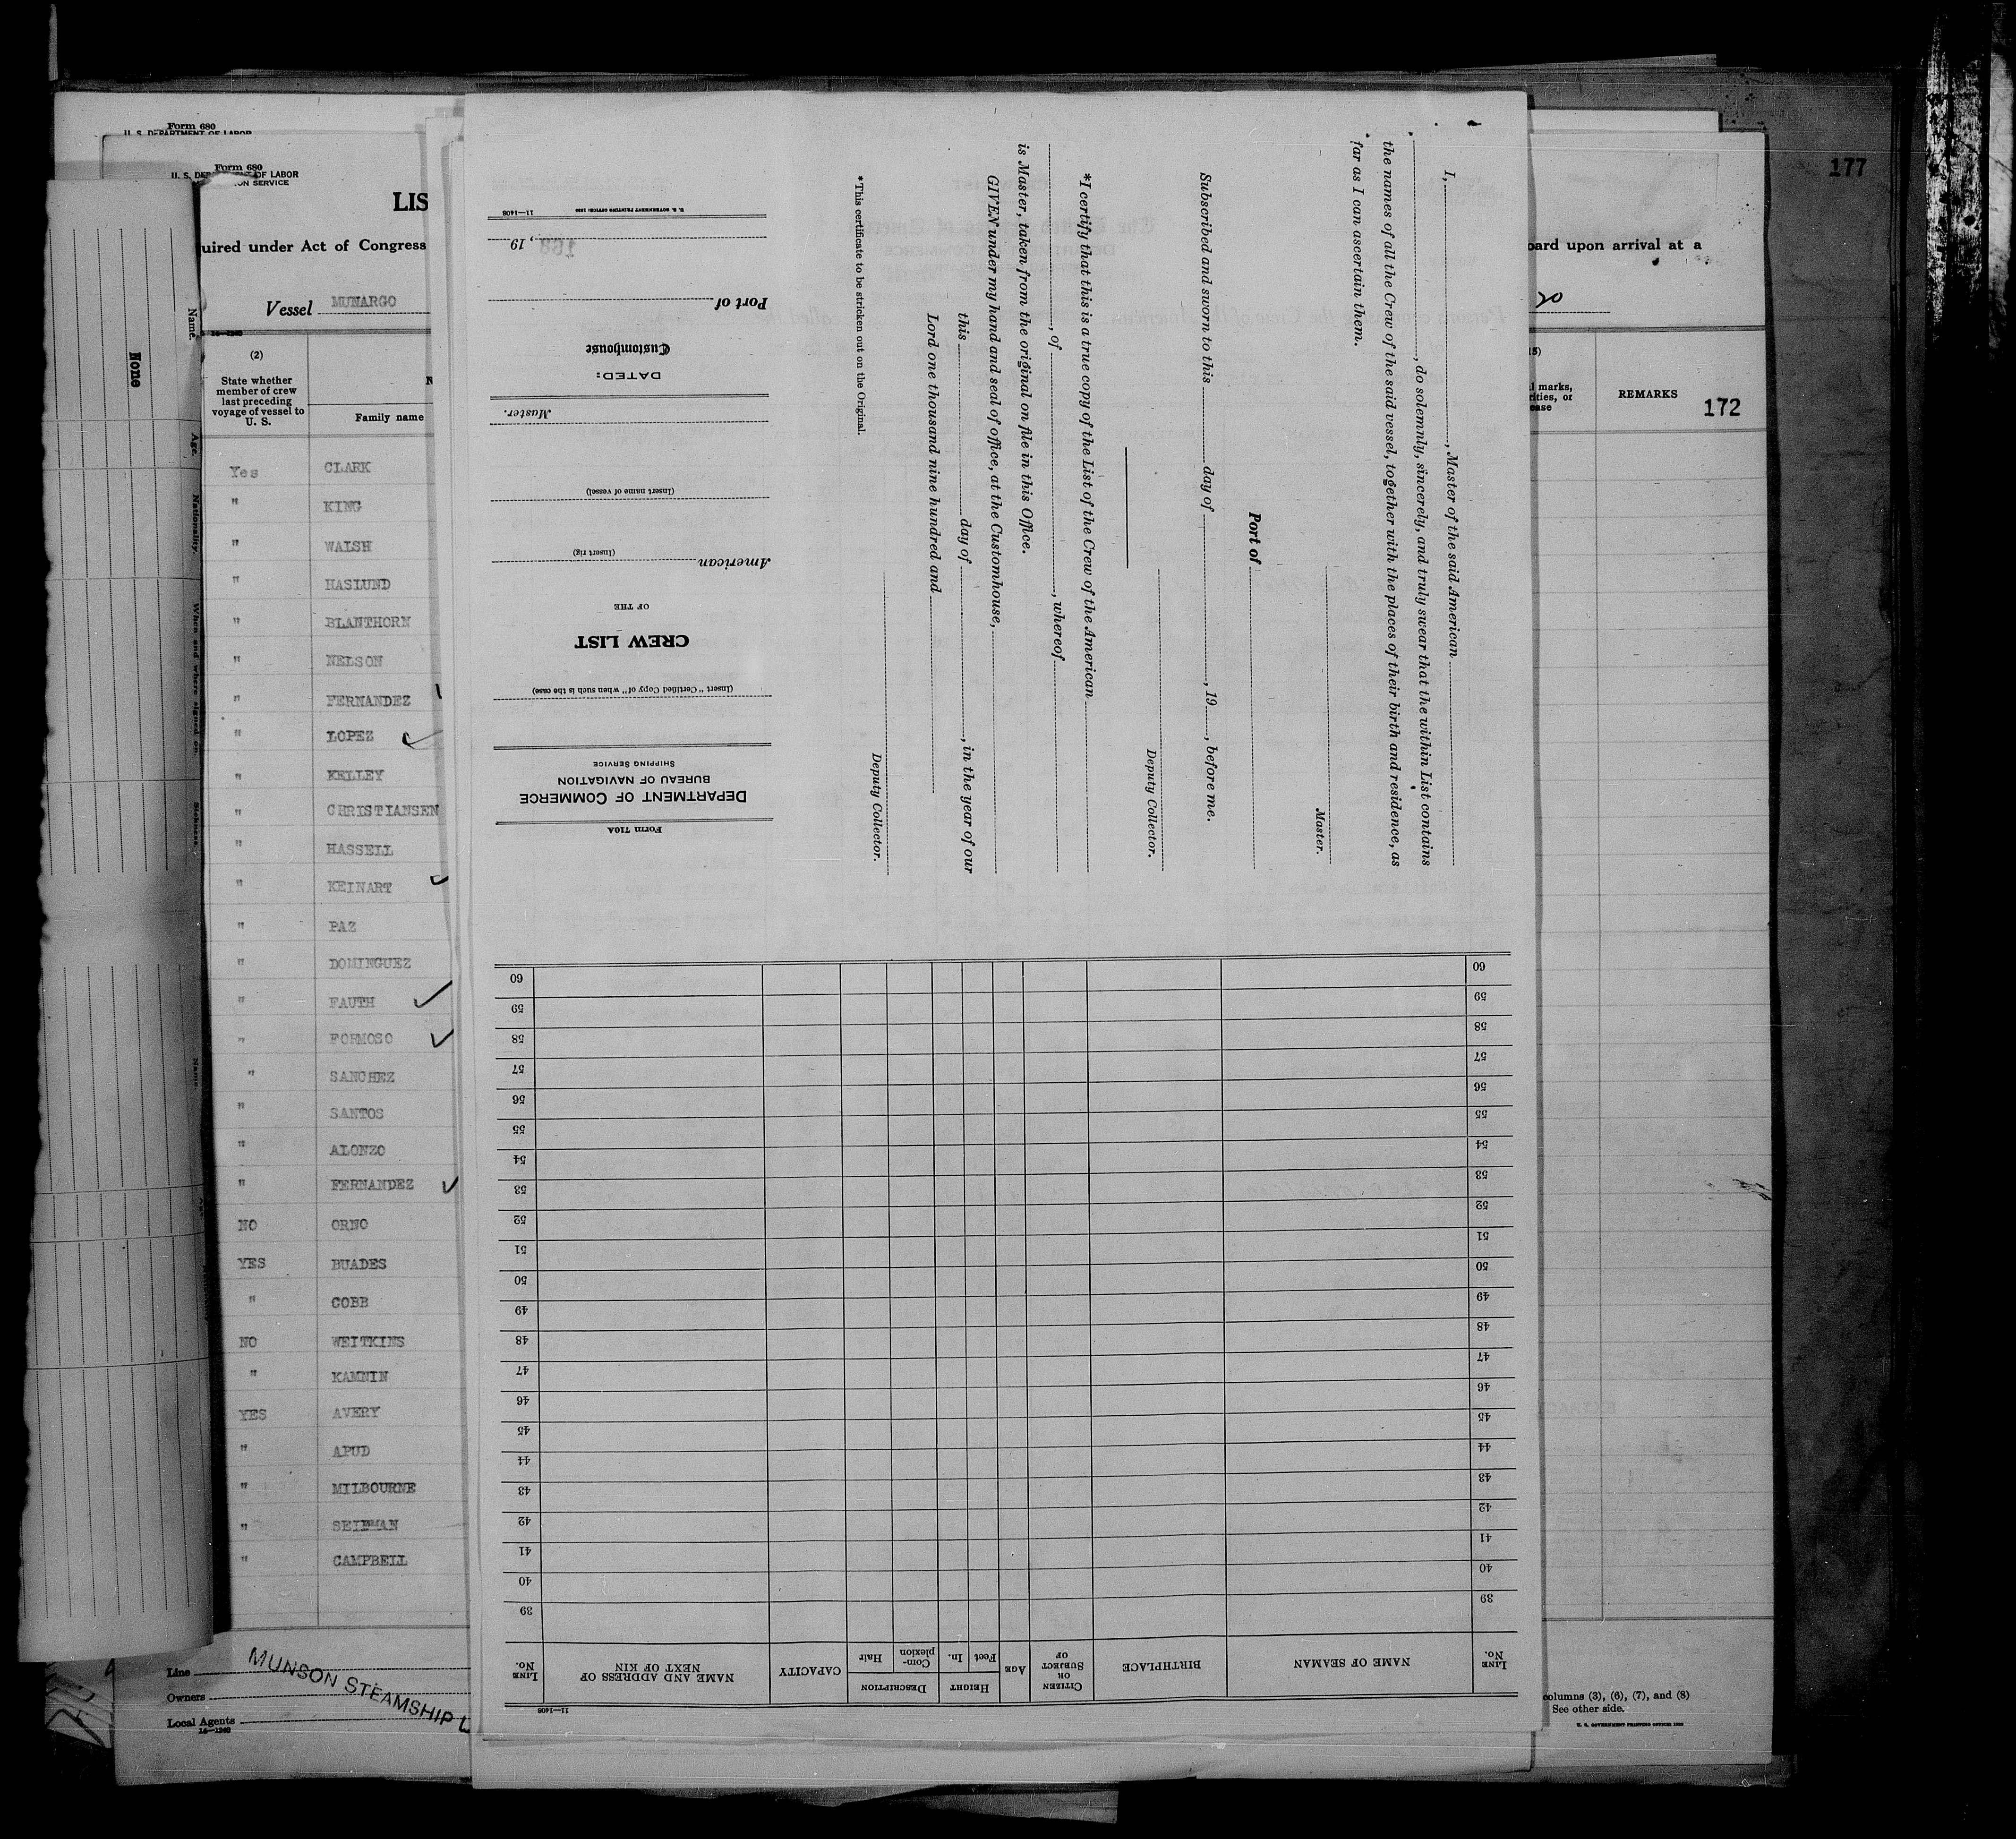 177
Form 680
U. S. DEPARTMENT OF LABOR
Form 680
U. S. DEPARTMENT OF LABOR
ON SERVICE
LIS
uired under Act of Congress
oard upon arrival at a
Vessel MUNARGO
20
(2)
State whether member of crew last preceding voyage of vessel to U. S.
Family name
l marks,
rities, or
ease
REMARKS
172
Yes CLARK
" KING
" WALSH
" HASLUND
" BLANTHORN
" NELSON
" FERNANDEZ
" LOPEZ
" KELLEY
" CHRISTIANSEN
" HASSELL
" KEINART
" PAZ
" DOMINGUEZ
" FAUTH
" FORMOSO
" SANCHEZ
" SANTOS
" ALONZO
" FERNANDEZ
NO ORNO
YES BUADES
" COBB
NO WEITKINS
" KAMNIN
YES AVERY
" APUD
" MILBOURNE
" SEIDMAN
" CAMPBELL
Line MUNSON STEAMSHIP L
Owners
Local Agents
14—1240
columns (3), (6), (7), and (8)
See other side.
U. S. GOVERNMENT PRINTING OFFICE
None
Name.
Age.
Nationality.
When and where signed on.
Sickness.
Name.
I, , Master of the said American
, do solemnly, sincerely, and truly swear that the within List contains
the names of all the Crew of the said vessel, together with the places of their birth and residence, as
far as I can ascertain them.
Master.
Port of
Subscribed and sworn to this day of , 19 , before me.
Deputy Collector.
*I certify that this is a true copy of the List of the Crew of the American
, of , whereof
is Master, taken from the original on file in this Office.
GIVEN under my hand and seal of office, at the Customhouse,
this day of , in the year of our
Lord one thousand nine hundred and
Deputy Collector.
*This certificate to be stricken out on the Original.
Form 710A
DEPARTMENT OF COMMERCE
BUREAU OF NAVIGATION
SHIPPING SERVICE
(Insert "Certified Copy of" when such is the case)
CREW LIST
OF THE
American
(Insert rig)
(Insert name of vessel)
Master.
DATED:
Customhouse
Port of
, 19
168
11—1408
U. S. GOVERNMENT PRINTING OFFICE
11—1408
LINE No.
NAME OF SEAMAN
BIRTHPLACE
CITIZEN OR SUBJECT OF
AGE
HEIGHT
Feet
In.
DESCRIPTION
Complexion
Hair
CAPACITY
NAME AND ADDRESS OF NEXT OF KIN
LINE No.
39 39
40 40
41 41
42 42
43 43
44 44
45 45
46 46
47 47
48 48
49 49
50 50
51 51
52 52
53 53
54 54
55 55
56 56
57 57
58 58
59 59
60 60